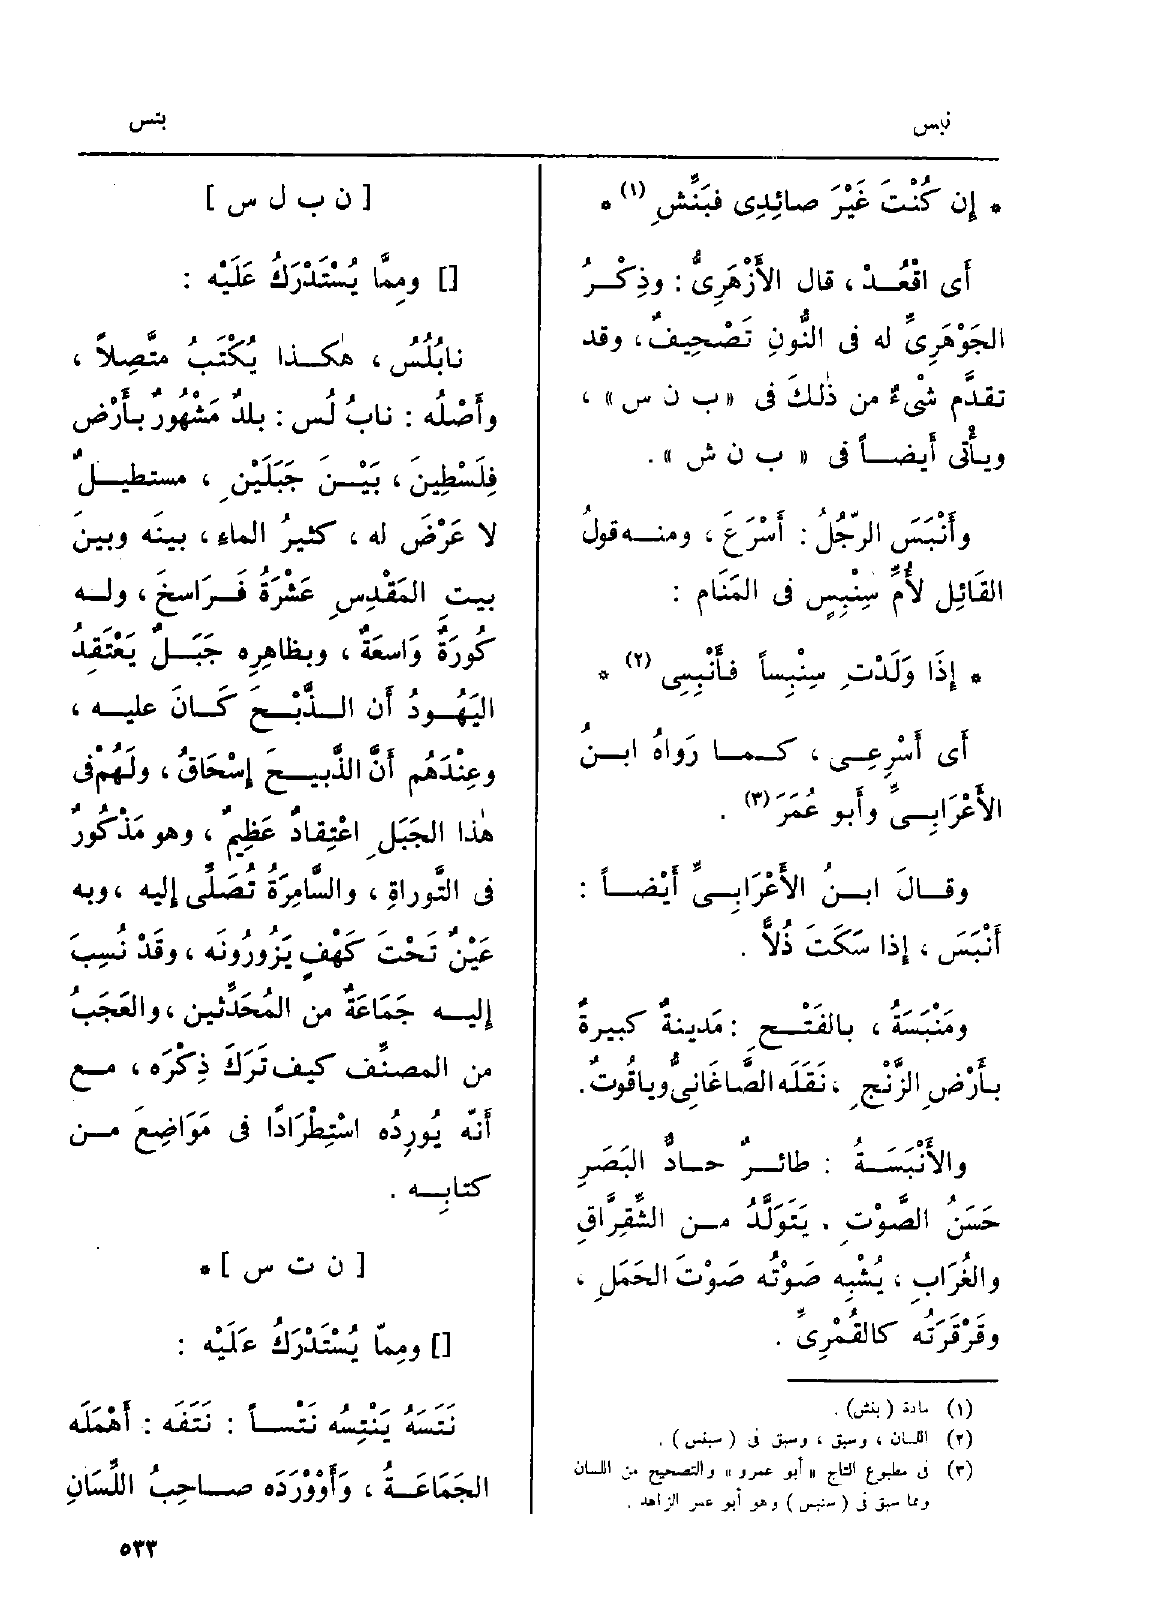 نبس
نتس
* إن كُنْتَ غَيْرَ صائِدِى فبَنِّشِ (١) *
أَى اقْعُـدْ ، قال الأَزْهَرِىُّ : وذِكْـرُ
الجَوْهَرِىِّ له فى النُّونِ تَصْحِيفٌ ، وقد
تقدَّم شَىْءٌ من ذٰلكَ فى « ب ن س » ،
ويأْتى أَيضـاً فى « ب ن ش » .
وأَنْبَسَ الرّجُلُ : أَسْرَعَ ، ومنـه قولُ
القَائِل لأُمِّ سِنْبِسٍ فى المَنَام :
* إِذَا وَلَدْتِ سِنْبِساً فأَنْبِسِى (٢) *
أَى أَسْرِعِـى ، كـمـا رَوَاهُ ابـنُ
الأَعْرَابِـىِّ وأَبو عُمَرَ (٣) .
وقـالَ ابـنُ الأَعْرَابِـىِّ أَيْضـاً :
أَنْبَسَ ، إِذا سَكَتَ ذُلاًّ .
ومَنْبَسَةُ ، بالفَتْـحِ : مَدينةٌ كبيرةٌ
بأَرْضِ الزَّنْجِ ، نَقَلَه الصّاغَانِىُّ وياقُوتٌ .
والأَنْبَسَـةُ : طائـرٌ حـادُّ البَصَرِ
حَسَنُ الصَّوْتِ ، يَتَوَلَّدُ مـن الشِّقِرَّاقِ
والغُرَابِ ، يُشْبِه صَوْتُه صَوْتَ الحَمَلِ ،
وقَرْقَرَتُه كالقُمْرِىِّ .
(١) مادة ( بنش ) .
(٢) اللسان ، وسبق ، وسبق فى ( سبنس ) .
(٣) فى مطبوع التاج « أبو عمرو » والتصحيح من اللسان
ومما سبق فى ( سنبس ) وهو أبو عمر الزاهد .
[ ن ب ل س ]
[] ومِمَّا يُسْتَدْرَكُ عَلَيْه :
نابُلُس ، هٰكـذا يُكْتَبُ متَّصِلاً ،
وأَصْلُه : نابُ لُس : بلدٌ مَشْهُورٌ بأَرْض
فِلَسْطِينَ ، بَيْـنَ جَبَلَيْنِ ، مستطيـلٌ
لا عَرْضَ له ، كثيرُ الماءِ ، بينَه وبينَ
بيتِ المَقْدِسِ عَشْرَةُ فَـرَاسِخَ ، ولـه
كُورَةٌ وَاسعَةٌ ، وبظاهِرِه جَبَـلٌ يَعْتَقِدُ
اليَهُـودُ أَن الـذَّبْـحَ كَـانَ عليـه ،
وعِنْدَهُم أَنَّ الذَّبِيـحَ إِسْحَاقُ ، ولَهُمْ فى
هٰذا الجَبَلِ اعْتِقادٌ عَظِيمٌ ، وهو مَذْكُورٌ
فى التَّوراةِ ، والسَّامِرَةُ تُصَلِّى إِليه ، وبه
عَيْنٌ تَحْتَ كَهْفٍ يَزُورُونَه ، وقَدْ نُسِبَ
إِليـه جَمَاعَةٌ من المُحَدِّثين ، والعَجَبُ
من المصنِّف كيف تَرَكَ ذِكْرَه ، مـع
أَنّه يُورِدُه اسْتِطْرَادًا فى مَوَاضِعَ مـن
كتابِـه .
[ ن ت س ] *
[] ومِمّا يُسْتَدْرَكُ عَلَيْه :
نَتَسَهُ يَنْتِسُه نَتْسـاً : نَتَفَه : أَهْمَلَه
الجَمَاعَـةُ ، وَأَوْوْرَدَه صـاحِبُ اللِّسَانِ
٥٣٣